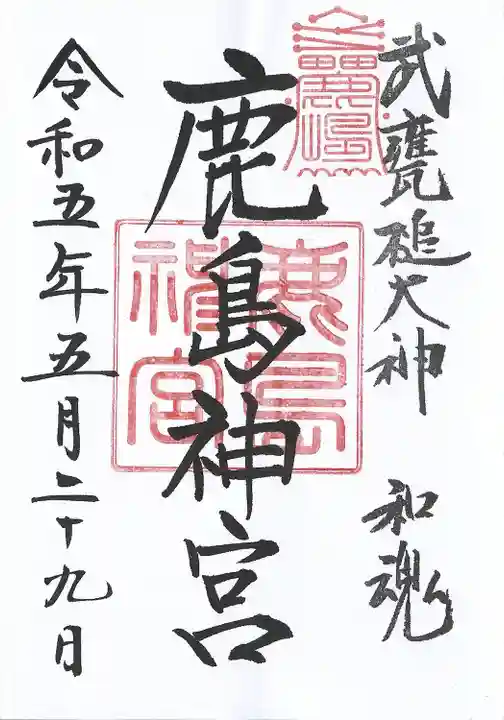 武甕槌大神 和魂
鹿島神宮
鹿島神宮
令和五年五月二十九日